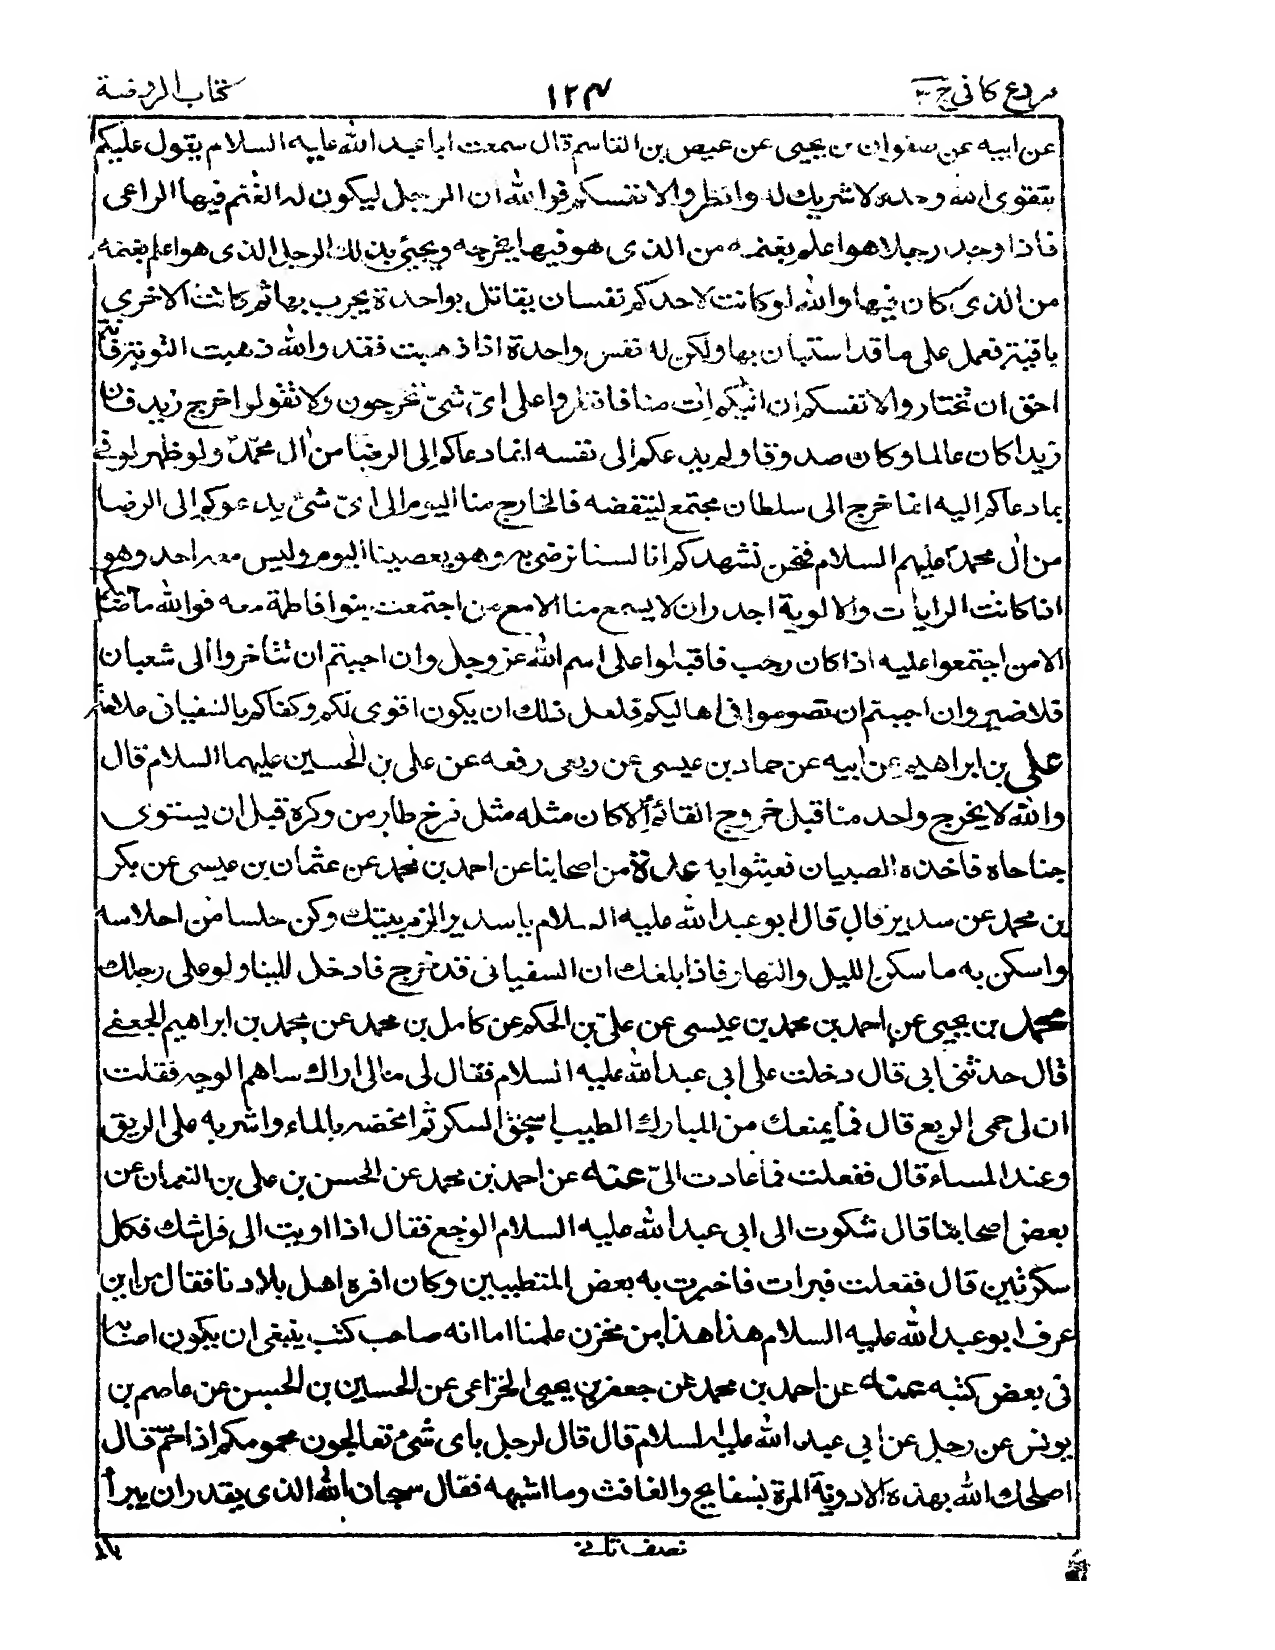 فروع كافي ج ٣ ١٢٤ كتاب الروضة
عن ابيه عن صفوان بن يحيى عن عيص بن القاسم قال سمعت ابا عبد الله عليه السلام يقول عليكم
بتقوى الله وحده لا شريك له وانظروا لانفسكم فوالله ان الرجل ليكون له الغنم فيها الراعى
فاذا وجد رجلا هو اعلم بغنمه من الذى هو فيها يخرجه ويجيئ بذلك الرجل الذى هو اعلم بغنمه
من الذى كان فيها والله لو كانت لاحدكم نفسان يقاتل بواحدة يجرب بها ثم كانت الاخرى
باقية تعمل على ما قد استبان بها ولكن له نفس واحدة اذا ذهبت فقد والله ذهبت التوبة فانتم
احق ان تختاروا لانفسكم ان اتيكم ات منا فانظروا على اى شئ تخرجون ولا تقولوا خرج زيد فان
زيدا كان عالما وكان صدوقا ولم يدعكم الى نفسه انما دعاكم الى الرضا من آل محمد ولو ظهر لوفى
بما دعاكم اليه انما خرج الى سلطان مجتمع لينقضه فالخارج منا اليوم الى اى شئ يدعوكم الى الرضا
من آل محمد عليهم السلام فنحن نشهدكم انا لسنا نرضى به وهو يعصينا اليوم وليس معه احد وهو
اذا كانت الرايات والالوية اجدر ان لا يسمع منا الا مع من اجتمعت بنوا فاطمة معه فوالله ما صاحبكم
الا من اجتمعوا عليه اذا كان رجب فاقبلوا على اسم الله عز وجل وان احببتم ان تتاخروا الى شعبان
فلا ضير وان احببتم ان تصوموا فى اهاليكم فلعل ذلك ان يكون اقوى لكم وكفاكم بالسفيانى علامة
على بن ابراهيم عن ابيه عن حماد بن عيسى عن ربعى رفعه عن على بن الحسين عليهما السلام قال
والله لا يخرج واحد منا قبل خروج القائم الا كان مثله مثل فرخ طار من وكره قبل ان يستوى
جناحاه فاخذه الصبيان فعبثوا به عدة من اصحابنا عن احمد بن محمد عن عثمان بن عيسى عن بكر
بن محمد عن سدير قال قال ابو عبد الله عليه السلام يا سدير الزم بيتك وكن حلسا من احلاسه
واسكن به ما سكن الليل والنهار فاذا بلغك ان السفيانى قد خرج فادخل الينا ولو على رجلك
محمد بن يحيى عن احمد بن محمد بن عيسى عن على بن الحكم عن كامل بن محمد عن محمد بن ابراهيم الجعفى
قال حدثنى ابى قال دخلت على ابى عبد الله عليه السلام فقال لى مالى اراك ساهم الوجه فقلت
ان لى حمى الربع قال فما يمنعك من المبارك الطيب اسحق السكر ثم امخضه بالماء واشربه على الريق
وعند المساء قال ففعلت فما عادت الىّ عنه عن احمد بن محمد عن الحسن بن على بن النعمان عن
بعض اصحابنا قال شكوت الى ابى عبد الله عليه السلام الوجع فقال اذا اويت الى فراشك فكل
سكرتين قال ففعلت فبرات فاخبرت به بعض المتطببين وكان افره اهل بلادنا فقال من اين
عرف ابو عبد الله عليه السلام هذا هذا من مخزن علمنا اما انه صاحب كتب ينبغى ان يكون اصابه
فى بعض كتبه عنه عن احمد بن محمد عن جعفر بن يحيى الخزاعى عن الحسين بن الحسن عن عاصم بن
يونس عن رجل عن ابى عبد الله عليه السلام قال قال لرجل باى شئ تعالجون محمومكم اذا حمّ قال
اصلحك الله بهذه الادوية المرة بسفايج والغافث وما اشبهه فقال سبحان الله الذى يقدر ان يبرأ
نصف ثانى